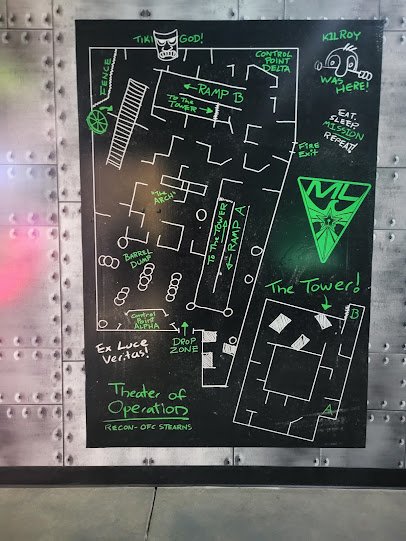 TIKI GOD!
KILROY
WAS HERE!
CONTROL
POINT
DELTA
FENCE
RAMP B
TO THE
TOWER
EAT.
SLEEP.
MISSION
REPEAT!
FIRE
EXIT
"THE
ARCH"
TO THE TOWER
RAMP A
BARREL
DUMP
The Tower!
B
Control
Point
ALPHA
Ex Luce
Veritas!
DROP
ZONE
A
Theater of
Operation
RECON-OFC STEARNS